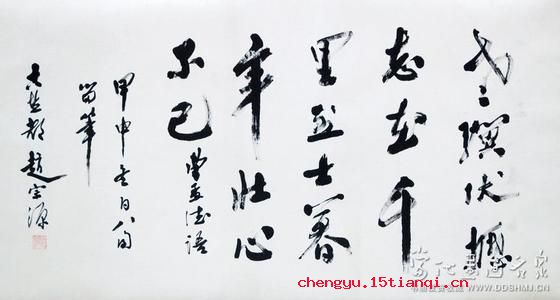 老驥伏櫪
志在千
里烈士暮
年壯心
不已 曹孟德語
甲申冬日八旬
留筆
趙宗源
chengyu.15tianqi.cn
当代书画名家
WWW.DDSHMJ.CN